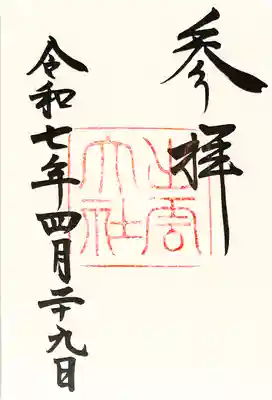 参拝
出雲大社
令和七年四月二十九日